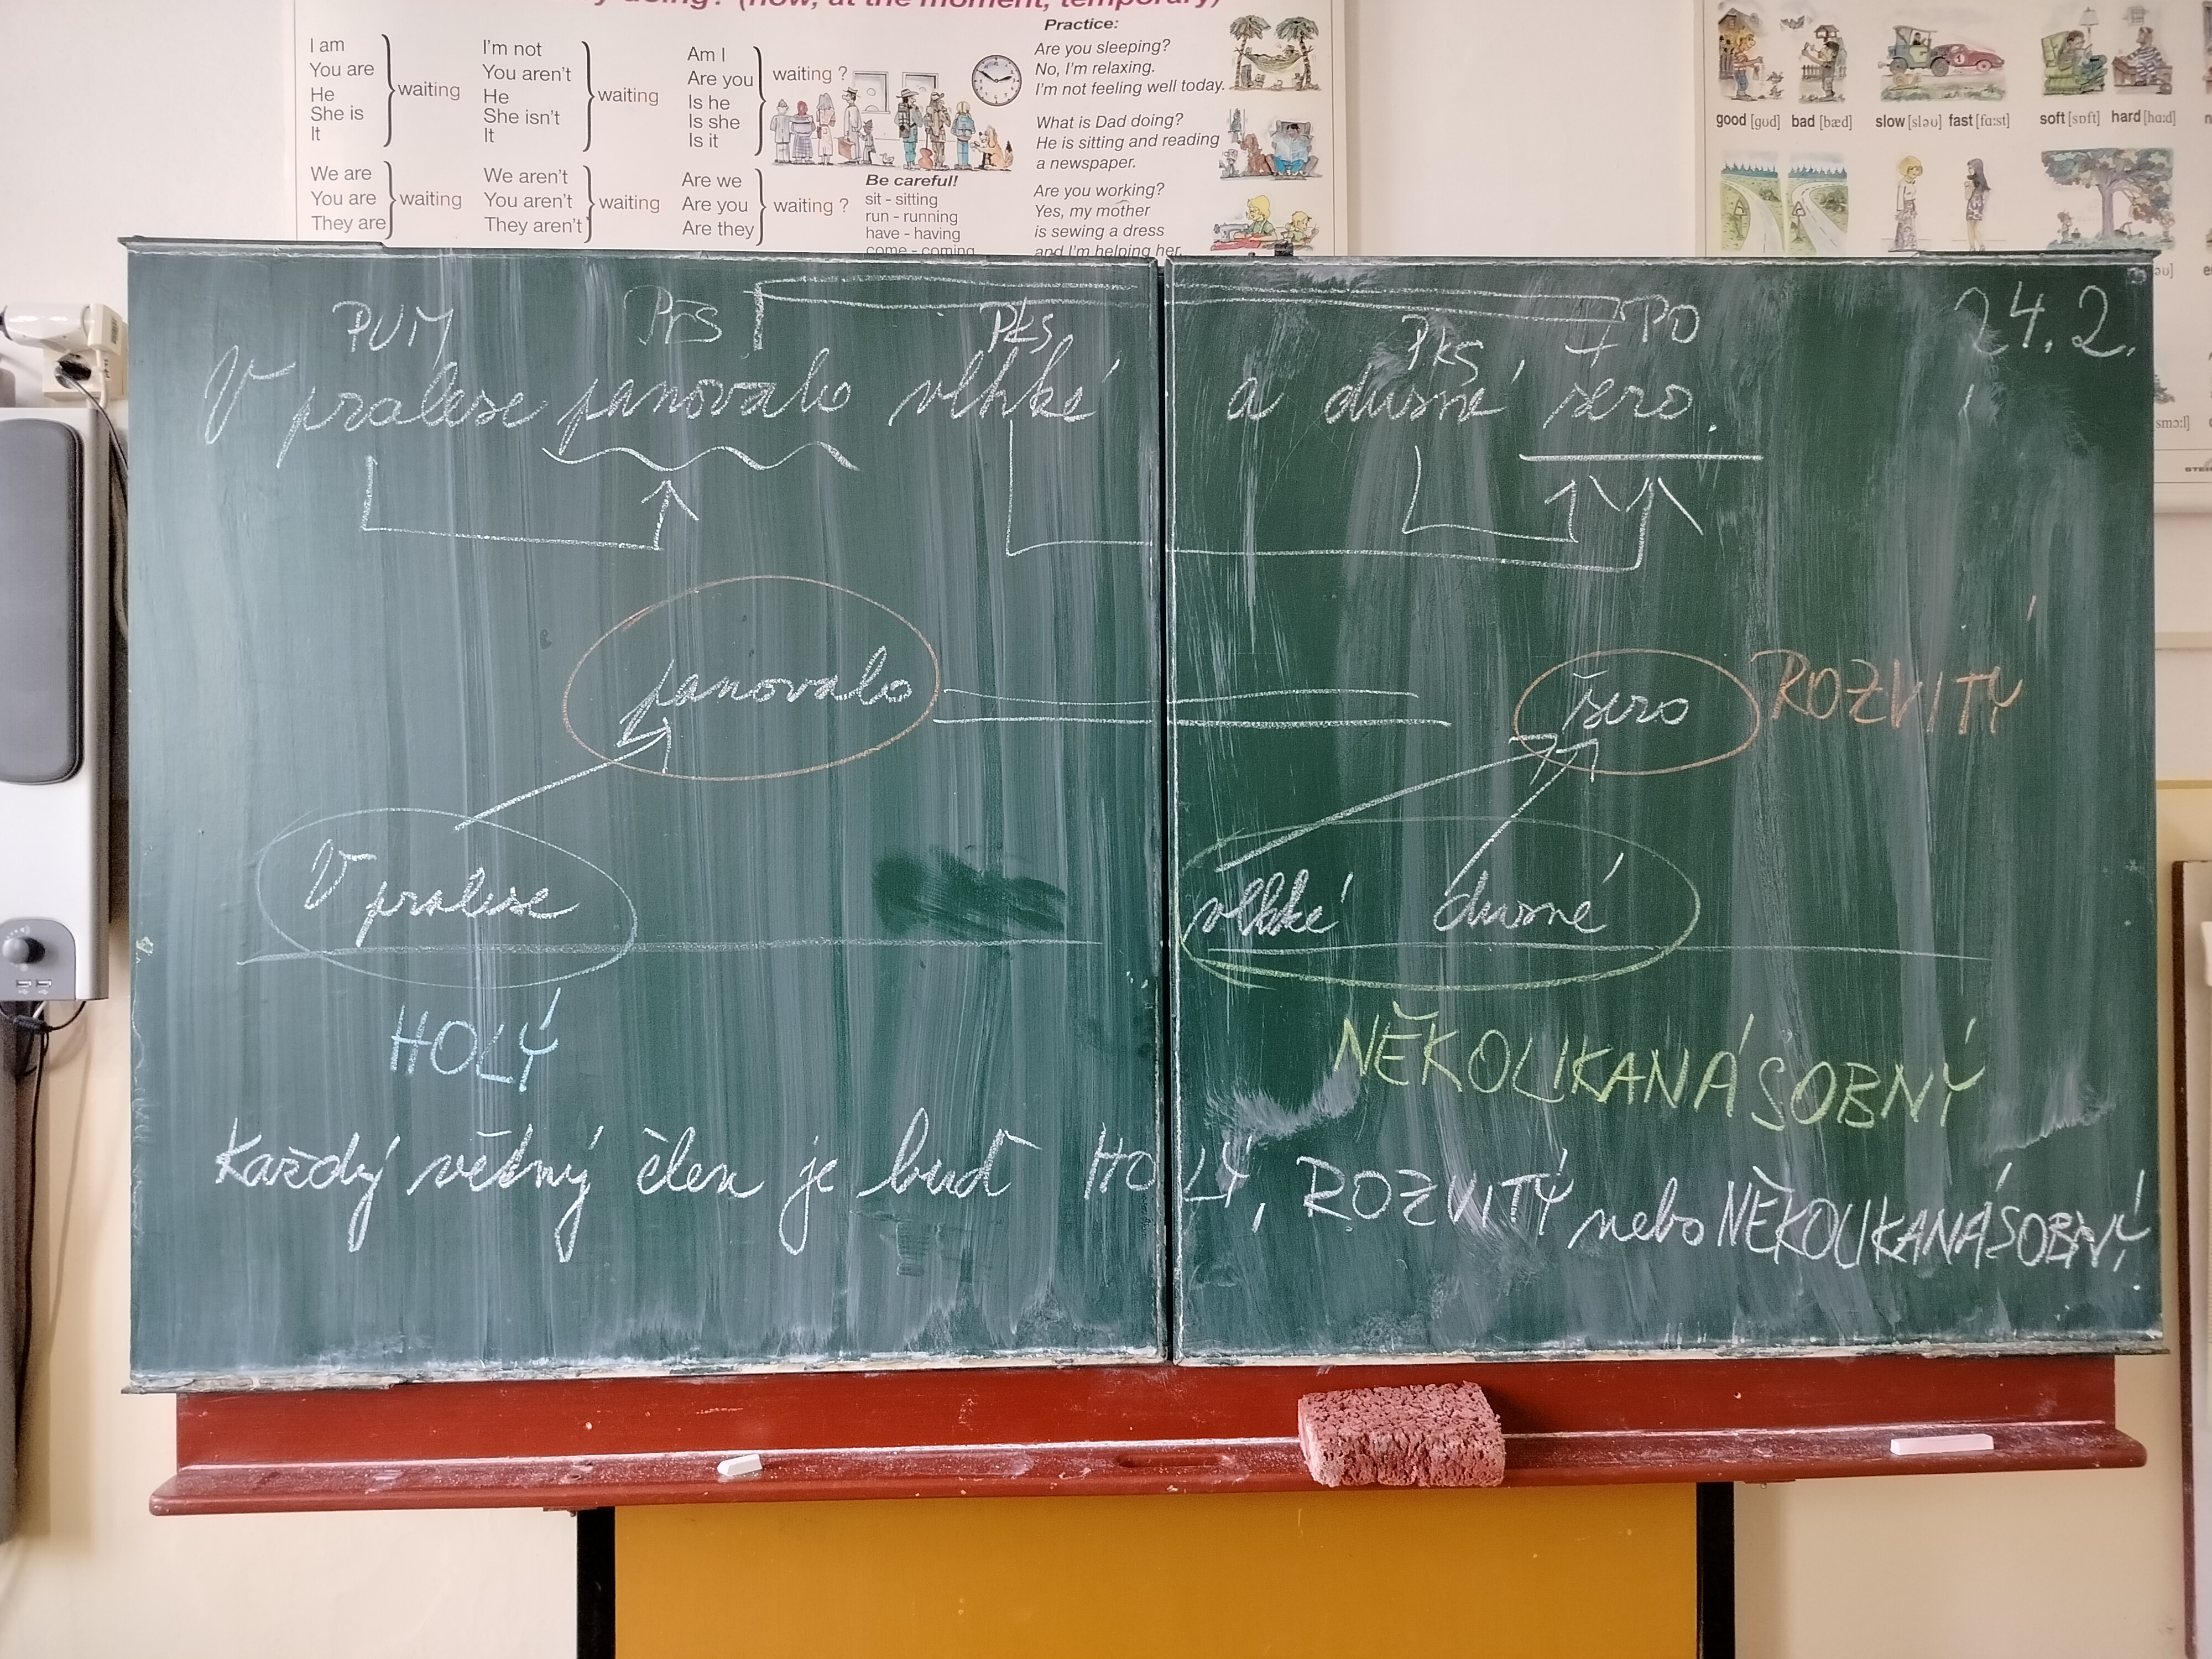 (now, at the moment, temporary)
I am
You are
He
She is
It
waiting
I'm not
You aren't
He
She isn't
It
waiting
Am I
Are you
Is he
Is she
Is it
waiting ?
We are
You are
They are
waiting
We aren't
You aren't
They aren't
waiting
Are we
Are you
Are they
waiting ?
Be careful!
sit - sitting
run - running
have - having
come - coming
Practice:
Are you sleeping?
No, I'm relaxing.
I'm not feeling well today.
What is Dad doing?
He is sitting and reading
a newspaper.
Are you working?
Yes, my mother
is sewing a dress
and I'm helping her.
good [gʊd] bad [bæd] slow [sləʊ] fast [fɑːst] soft [sɒft] hard [hɑːd]
24.2.
PUM PřS PKS PKS PO
V pralese panovalo vlhké a dusné šero.
panovalo šero ROZVITÝ
V pralese vlhké dusné
HOLÝ NĚKOLIKANÁSOBNÝ
Každý větný člen je buď HOLÝ, ROZVITÝ nebo NĚKOLIKANÁSOBNÝ.